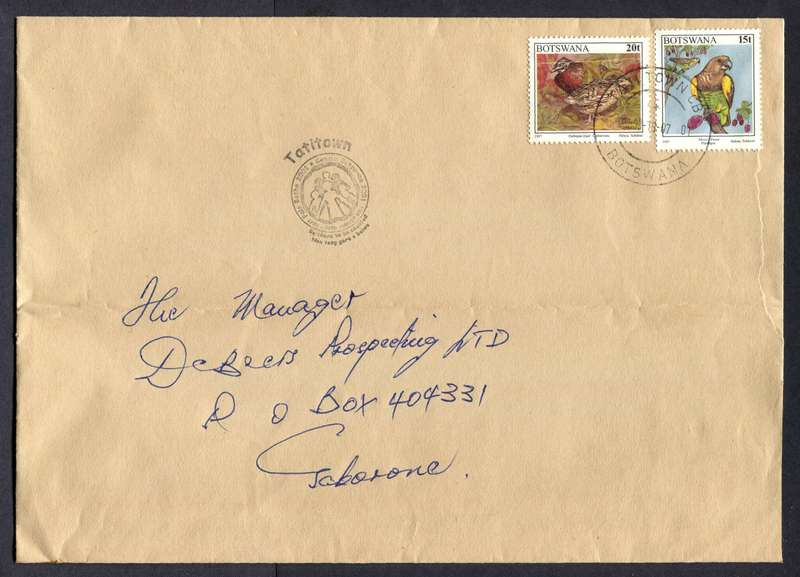 BOTSWANA 20t
BOTSWANA 15t
1997
1997
BOTSWANA
Tatitown
The Manager
DeBeers Prospecting LTD
P O Box 404331
Gaborone.